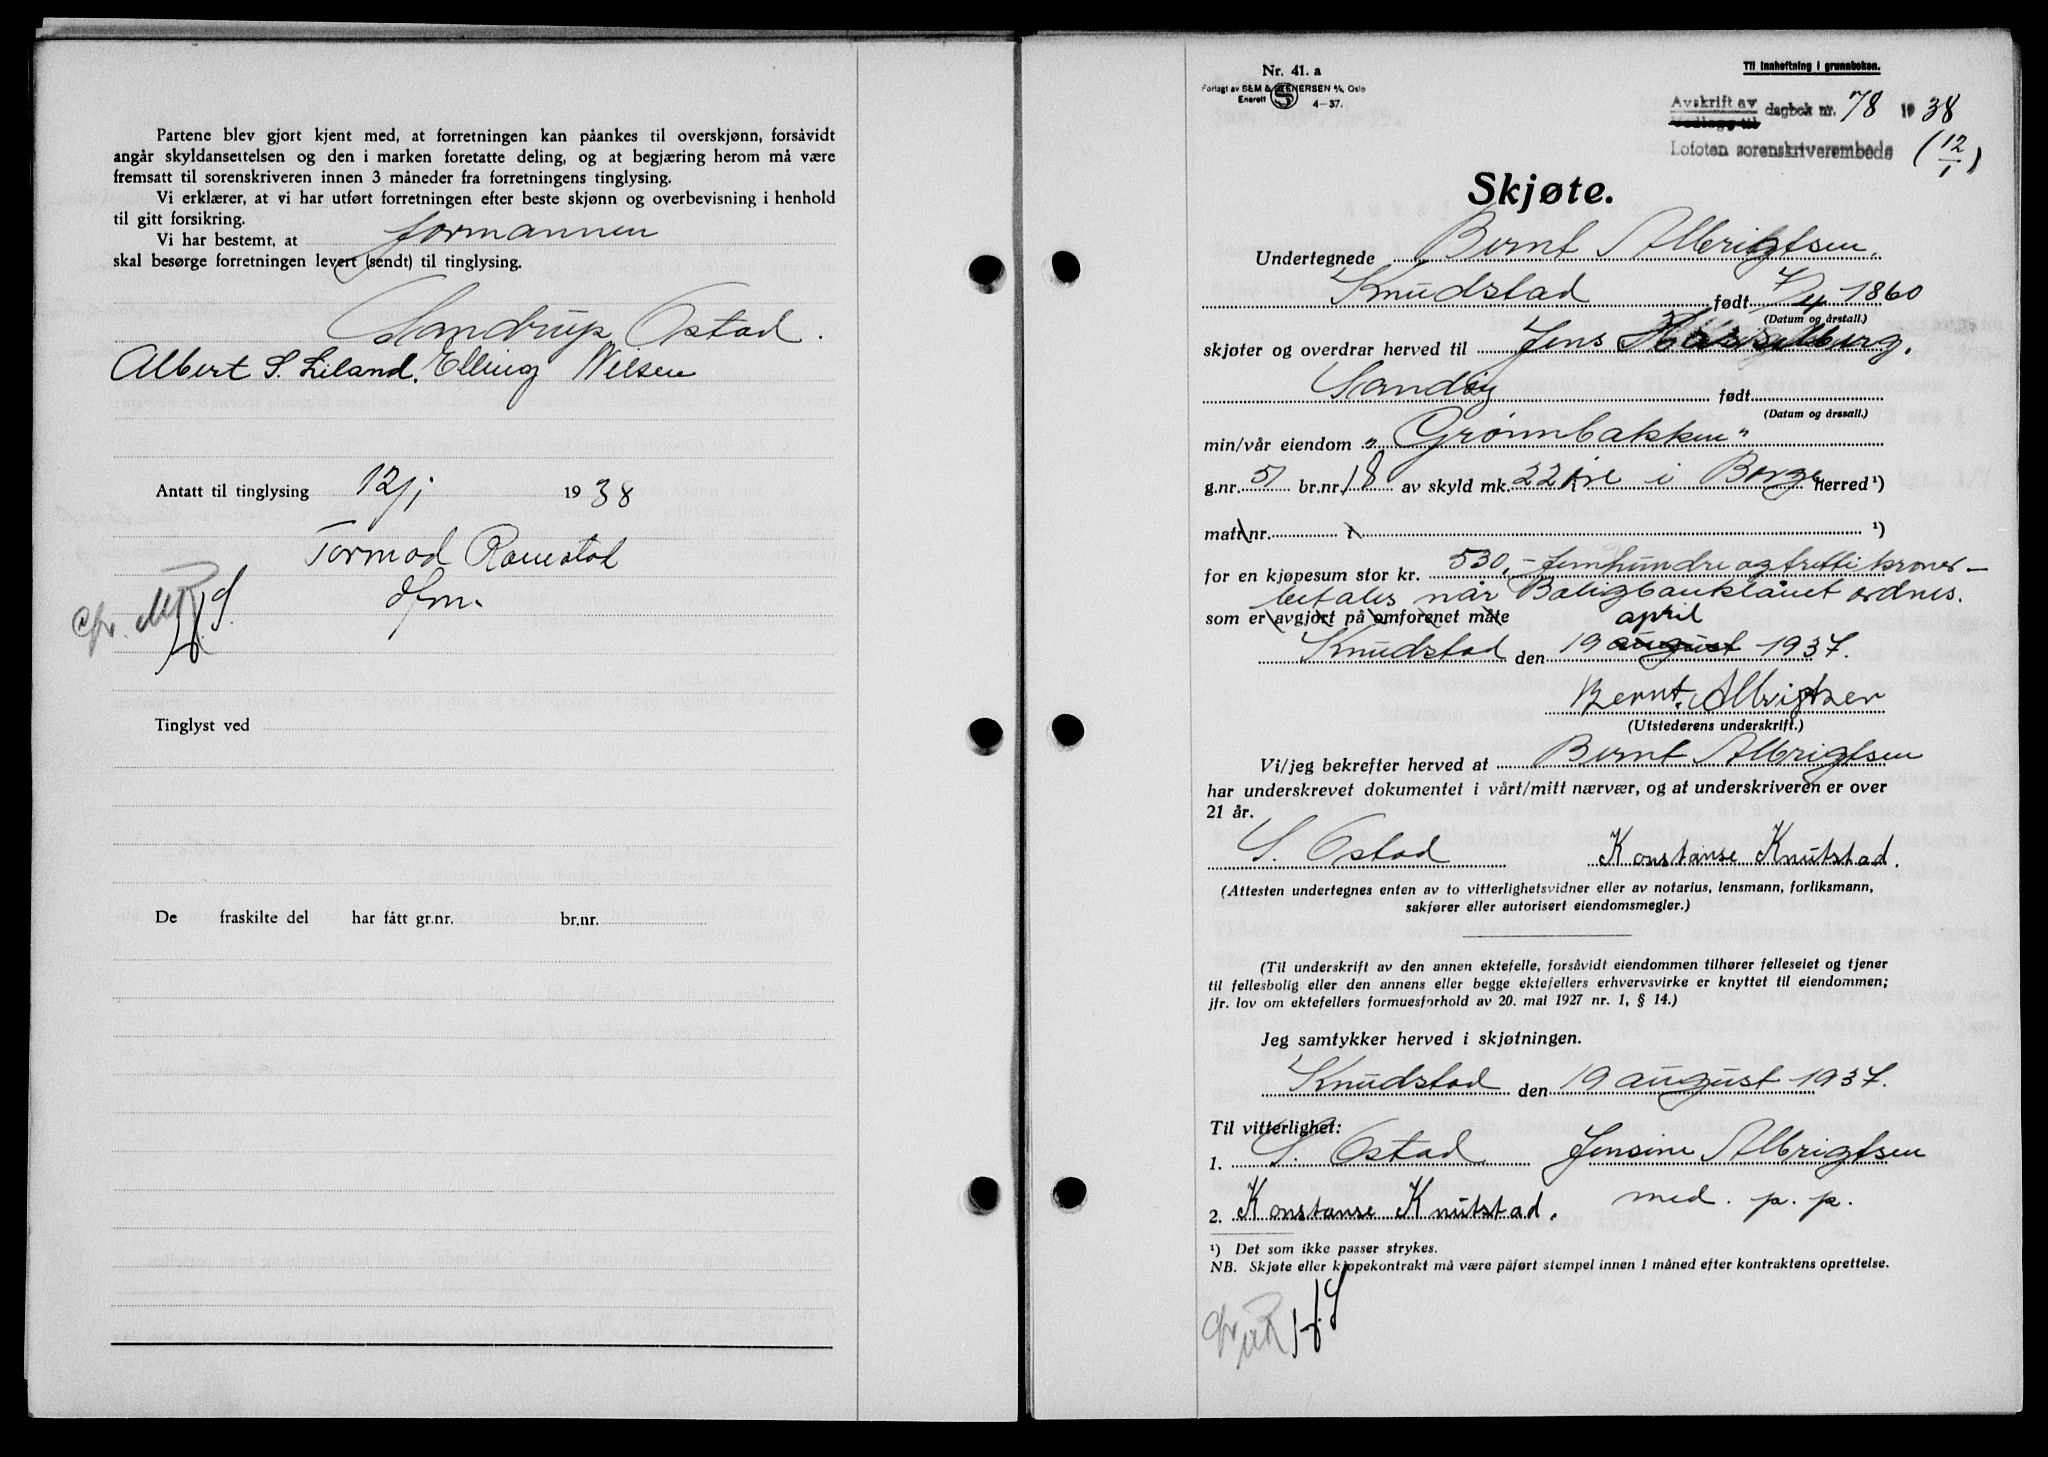 Partene blev gjort kjent med, at forretningen kan påankes til overskjønn, forsåvidt
angår skyldansettelsen og den i marken foretatte deling, og at begjæring herom må være
fremsatt til sorenskriveren innen 3 måneder fra forretningens tinglysing.
Vi erklærer, at vi har utført forretningen efter beste skjønn og overbevisning i henhold
til gitt forsikring.
Vi har bestemt, at formannen
skal besørge forretningen levert (sendt) til tinglysing.
Sandrup Ostad.
Albert S. Liland. Elling Nilsen
Antatt til tinglysing 12/1 1938
Tormod
Tinglyst ved
De fraskilte del har fått gr.nr. br.nr.
Nr. 41. a
Forlagt av SEM & STENERSEN A/S, Oslo
Enerett 4-37.
Til innheftning i grunnboken.
Avskrift av
Vedlegg til dagbok nr. 78 1938
Lofoten sorenskriverembede (12/1)
Skjøte.
Undertegnede Bernt Albrigtsen,
Knudstad født 7/4 1860
(Datum og årstall.)
skjøter og overdrar herved til Jens Hasselberg,
Sandøy født
(Datum og årstall.)
min/vår eiendom „Grønnbakken"
g.nr. 51 br.nr. 18 av skyld mk. 22 øre i Borge herred ¹)
matr.nr. i ¹)
for en kjøpesum stor kr. 530,- femhundre og tretti kroner –
betales når Boligbanklånet ordnes.
som er avgjort på omforenet måte
april
Knudstad den 19 august 1937.
Bernt. Albrigtsen
(Utstederens underskrift.)
Vi/jeg bekrefter herved at Bernt Albrigtsen
har underskrevet dokumentet i vårt/mitt nærvær, og at underskriveren er over
21 år.
S. Ostad Konstanse Knutstad.
(Attesten undertegnes enten av to vitterlighetsvidner eller av notarius, lensmann, forliksmann,
sakfører eller autorisert eiendomsmegler.)
(Til underskrift av den annen ektefelle, forsåvidt eiendommen tilhører felleseiet og tjener
til fellesbolig eller den annens eller begge ektefellers erhvervsvirke er knyttet til eiendommen;
jfr. lov om ektefellers formuesforhold av 20. mai 1927 nr. 1, § 14.)
Jeg samtykker herved i skjøtningen.
Knudstad den 19 august 1937.
Til vitterlighet:
1. S. Ostad Jensine Albrigtsen
2. Konstanse Knutstad. med. p. p.
¹) Det som ikke passer strykes.
NB. Skjøte eller kjøpekontrakt må være påført stempel innen 1 måned efter kontraktens oprettelse.